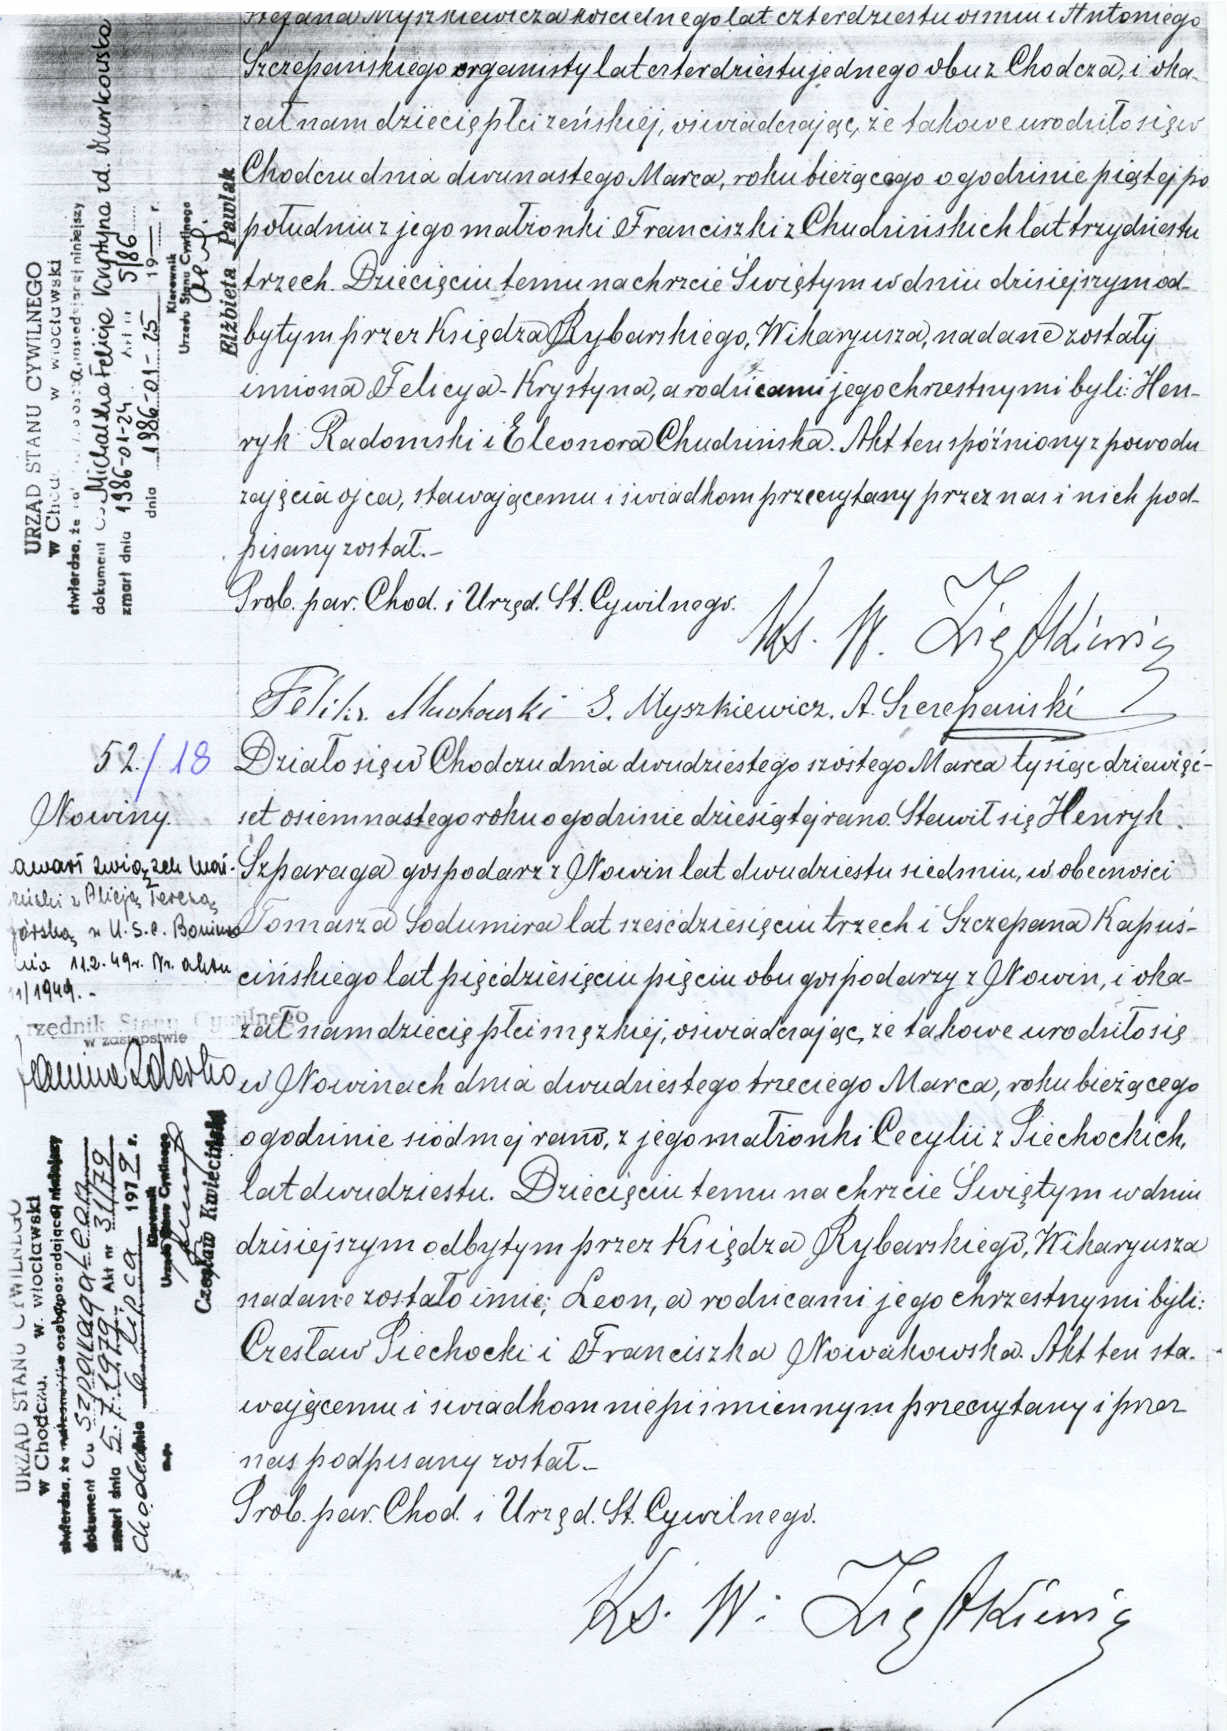 Stefana Myszkiewicza kościelnego lat czterdziestu ośmiu i Antoniego
Szczepańskiego organisty lat czterdziestu jednego obu z Chodcza, i oka-
zał nam dziecię płci żeńskiej, oświadczając, że takowe urodziło się w
Chodczu dnia dwunastego Marca, roku bieżącego o godzinie piątej po
południu z jego małżonki Franciszki z Chudzińskich lat trzydziestu
trzech. Dziecięciu temu na chrzcie Świętym w dniu dzisiejszym od-
bytym przez Księdza Rybarskiego, Wikaryusza, nadane zostały
imiona Felicya-Krystyna, a rodzicami jego chrzestnymi byli: Hen-
ryk Radomski i Eleonora Chudzińska. Akt ten spóźniony z powodu
zajęcia ojca, stawającemu i świadkom przeczytany przez nas i nich pod-
pisany został.-
Prob. par. Chod. i Urzęd. St. Cywilnego.
Ks. W.
Feliks S. Myszkiewicz. A. Szczepański
URZĄD STANU CYWILNEGO
w Chod w włocławski
stwierdza, że niniejszy
dokument Michalska Felicja Krystyna zd. Murkowska
zmarł dnia 1986-01-24 5/86
dnia 1986-01-25 19 r.
Kierownik
Urzędu Stanu Cywilnego
Elżbieta Pawlak
52/18
Nowiny.
Działo się w Chodczu dnia dwudziestego szóstego Marca tysiąc dziewięć-
set osiemnastego roku o godzinie dziesiątej rano. Stawił się Henryk
Szparaga gospodarz z Nowin lat dwudziestu siedmiu, w obecności
Tomasza Sodumira lat sześćdziesięciu trzech i Szczepana Kapuś-
cińskiego lat pięćdziesięciu pięciu obu gospodarzy z Nowin, i oka-
zał nam dziecię płci męzkiej, oświadczając, że takowe urodziło się
w Nowinach dnia dwudziestego trzeciego Marca, roku bieżącego
o godzinie siódmej rano, z jego małżonki Cecylii z Piechockich,
lat dwudziestu. Dziecięciu temu na chrzcie Świętym w dniu
dzisiejszym odbytym przez Księdza Rybarskiego, Wikaryusza
nadane zostało imię; Leon, a rodzicami jego chrzestnymi byli:
Czesław Piechocki i Franciszka Nowakowska. Akt ten sta-
wającemu i świadkom niepiśmiennym przeczytany i przez
nas podpisany został.-
Prob. par. Chod. i Urzęd. St. Cywilnego.
Ks. W.
awarł związek mał-
żeński z Alicją Teresą
górską w U.S.C. Boniewo
nia 11.2.49r. Nr. aktu
11/1949.-
rzędnik Stanu Cywilnego
w zastępstwie
URZĄD STANU CYWILNEGO
w Chodczu. w. włocławski
stwierdza, że osoby posiadającej niniejszy
dokument Szparaga Leon
zmarł dnia 5.7.1979 Akt nr 31/79
Chodecz dnia 6 lipca 1979 r.
Kierownik
Urzędu Stanu Cywilnego
Czesław Kwieciński